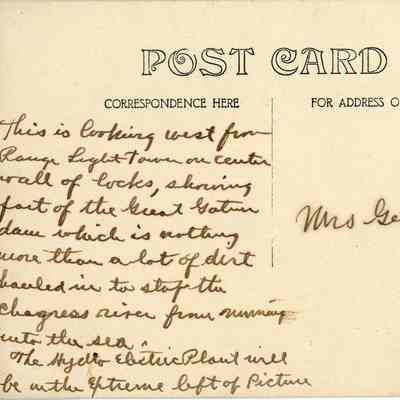 POST CARD
CORRESPONDENCE HERE
FOR ADDRESS O
This is looking west from
Range Light Tower on center
wall of locks, showing
part of the Great Gatun
dam which is nothing
more than a lot of dirt
hauled in to stop the
Chagress river from running
into the sea.
The Hydro Electric Plant will
be in the Extreme left of Picture
Mrs Ge